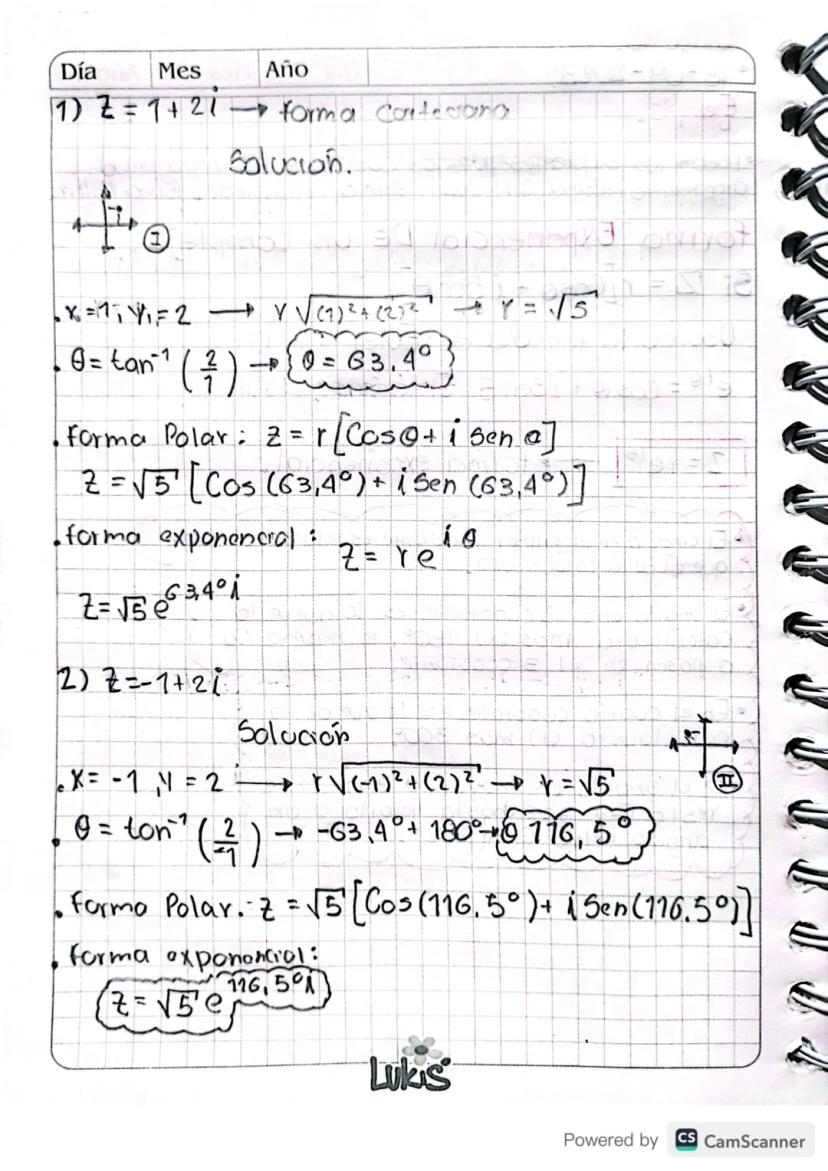 Día Mes Año
1) Z = 1 + 2i → forma cartesiana
Solución.
I
. x = 1, y = 2 → r √(1)² + (2)² → r = √5
. θ = tan⁻¹ (2/1) → θ = 63,4°
. forma Polar: z = r [Cos θ + i Sen θ]
z = √5 [Cos (63,4°) + i Sen (63,4°)]
. forma exponencial: z = r e^iθ
z = √5 e^63,4°i
2) z = -1 + 2i
Solución
II
. x = -1, y = 2 → r √(-1)² + (2)² → r = √5
. θ = tan⁻¹ (2/-1) → -63,4° + 180° → θ 116,5°
. forma Polar. z = √5 [Cos (116.5°) + i Sen (116.5°)]
. forma exponencial:
z = √5 e^116,5°i
Lukis
Powered by CS CamScanner